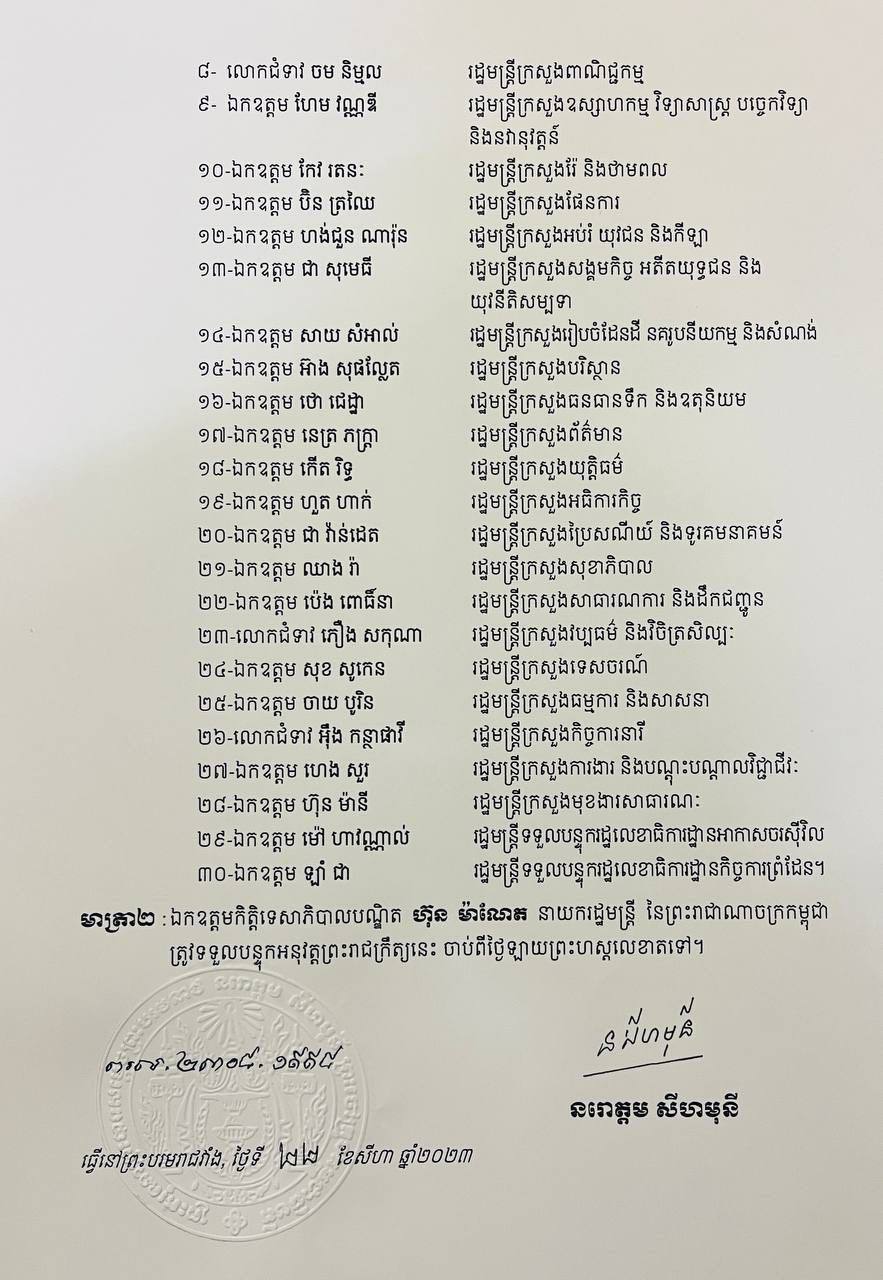 ៨- លោកជំទាវ ចម និម្មល រដ្ឋមន្ត្រីក្រសួងពាណិជ្ជកម្ម
៩- ឯកឧត្តម ហែម វណ្ណឌី រដ្ឋមន្ត្រីក្រសួងឧស្សាហកម្ម វិទ្យាសាស្ត្រ បច្ចេកវិទ្យា
និងនវានុវត្តន៍
១០-ឯកឧត្តម កែវ រតនៈ រដ្ឋមន្ត្រីក្រសួងរ៉ែ និងថាមពល
១១-ឯកឧត្តម ប៊ិន ត្រឈៃ រដ្ឋមន្ត្រីក្រសួងផែនការ
១២-ឯកឧត្តម ហង់ជួន ណារ៉ុន រដ្ឋមន្ត្រីក្រសួងអប់រំ យុវជន និងកីឡា
១៣-ឯកឧត្តម ជា សុមេធី រដ្ឋមន្ត្រីក្រសួងសង្គមកិច្ច អតីតយុទ្ធជន និង
យុវនីតិសម្បទា
១៤-ឯកឧត្តម សាយ សំអាល់ រដ្ឋមន្ត្រីក្រសួងរៀបចំដែនដី នគរូបនីយកម្ម និងសំណង់
១៥-ឯកឧត្តម អ៊ាង សុផល្លែត រដ្ឋមន្ត្រីក្រសួងបរិស្ថាន
១៦-ឯកឧត្តម ថោ ជេដ្ឋា រដ្ឋមន្ត្រីក្រសួងធនធានទឹក និងឧតុនិយម
១៧-ឯកឧត្តម នេត្រ ភក្ត្រា រដ្ឋមន្ត្រីក្រសួងព័ត៌មាន
១៨-ឯកឧត្តម កើត រិទ្ធ រដ្ឋមន្ត្រីក្រសួងយុត្តិធម៌
១៩-ឯកឧត្តម ហួត ហាក់ រដ្ឋមន្ត្រីក្រសួងអធិការកិច្ច
២០-ឯកឧត្តម ជា វ៉ាន់ដេត រដ្ឋមន្ត្រីក្រសួងប្រៃសណីយ៍ និងទូរគមនាគមន៍
២១-ឯកឧត្តម ឈាង រ៉ា រដ្ឋមន្ត្រីក្រសួងសុខាភិបាល
២២-ឯកឧត្តម ប៉េង ពោធិ៍នា រដ្ឋមន្ត្រីក្រសួងសាធារណការ និងដឹកជញ្ជូន
២៣-លោកជំទាវ ភឿង សកុណា រដ្ឋមន្ត្រីក្រសួងវប្បធម៌ និងវិចិត្រសិល្បៈ
២៤-ឯកឧត្តម សុខ សូកេន រដ្ឋមន្ត្រីក្រសួងទេសចរណ៍
២៥-ឯកឧត្តម ចាយ បូរិន រដ្ឋមន្ត្រីក្រសួងធម្មការ និងសាសនា
២៦-លោកជំទាវ អ៊ឹង កន្ថាផាវី រដ្ឋមន្ត្រីក្រសួងកិច្ចការនារី
២៧-ឯកឧត្តម ហេង សួរ រដ្ឋមន្ត្រីក្រសួងការងារ និងបណ្តុះបណ្តាលវិជ្ជាជីវៈ
២៨-ឯកឧត្តម ហ៊ុន ម៉ានី រដ្ឋមន្ត្រីក្រសួងមុខងារសាធារណៈ
២៩-ឯកឧត្តម ម៉ៅ ហាវណ្ណាល់ រដ្ឋមន្ត្រីទទួលបន្ទុករដ្ឋលេខាធិការដ្ឋានអាកាសចរស៊ីវិល
៣០-ឯកឧត្តម ឡាំ ជា រដ្ឋមន្ត្រីទទួលបន្ទុករដ្ឋលេខាធិការដ្ឋានកិច្ចការព្រំដែន។
មាត្រា២ : ឯកឧត្តមកិត្តិទេសាភិបាលបណ្ឌិត ហ៊ុន ម៉ាណែត នាយករដ្ឋមន្ត្រី នៃព្រះរាជាណាចក្រកម្ពុជា
ត្រូវទទួលបន្ទុកអនុវត្តព្រះរាជក្រឹត្យនេះ ចាប់ពីថ្ងៃឡាយព្រះហស្តលេខាតទៅ។
ន សីហមុនី
ព.រ.ល. ២៣០៨. ១១១៨
នរោត្តម សីហមុនី
ធ្វើនៅព្រះបរមរាជវាំង, ថ្ងៃទី ២២ ខែសីហា ឆ្នាំ២០២៣